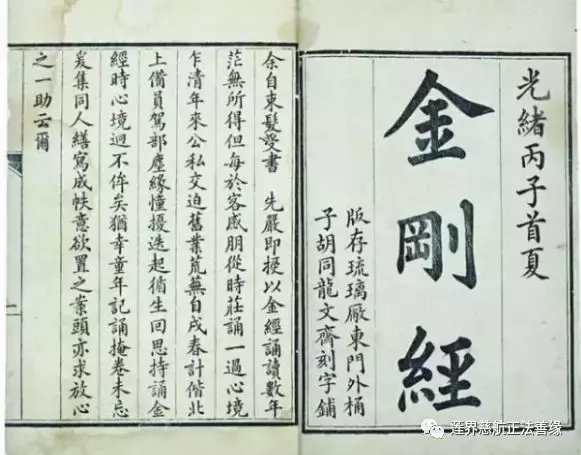 光緒丙子首夏
金剛經
版存琉璃厰東門外桶
子胡同龍文齋刻字鋪
余自束髮受書　先嚴即授以金經誦讀數年
茫無所得但每於客感朋從時莊誦一過心境
乍清年來公私交迫舊業荒蕪自戌春計偕北
上備員駕部塵緣憧擾迭起循生回思持誦金
經時心境迥不侔矣猶幸童年記誦掩卷未忘
爰集同人繕寫成帙意欲置之案頭亦求放心
之一助云爾
莲界慈航正法善缘